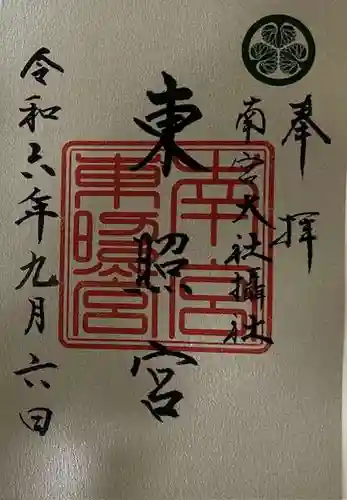 奉拝
南宮大社攝社
東照宮
南宮
東照宮
令和六年九月六日